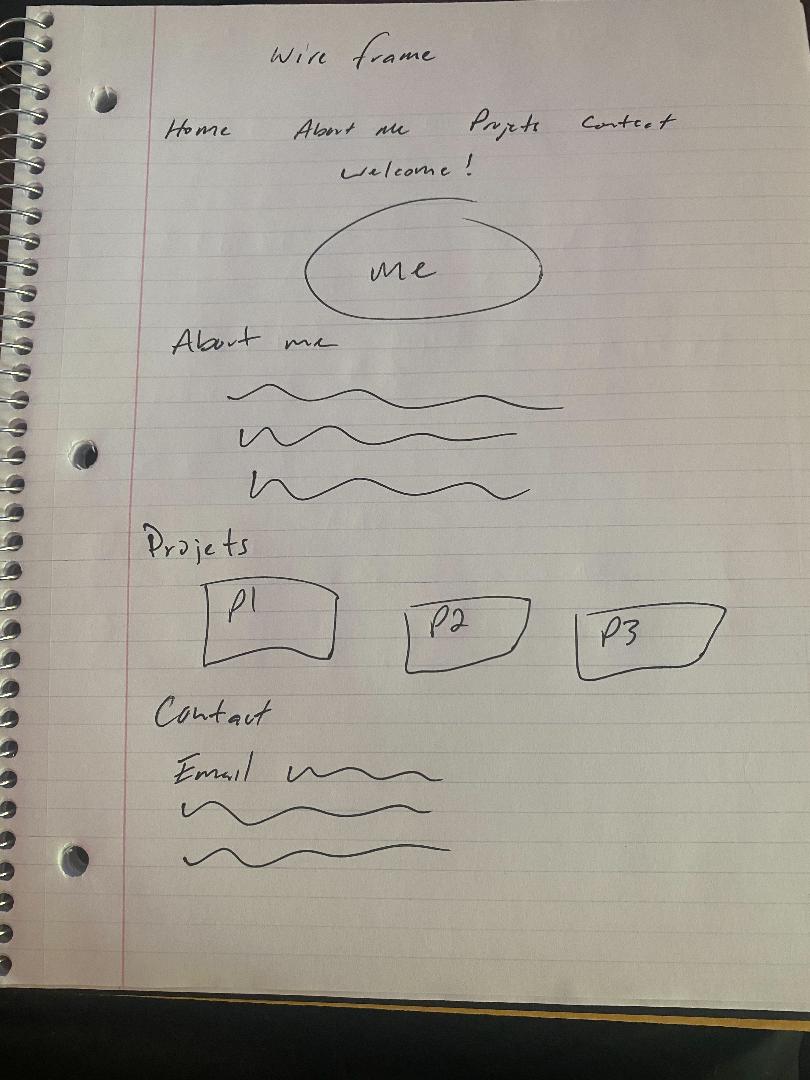 Wire frame
Home About me Projets Contact
Welcome!
me
About me
Projets
P1 P2 P3
Contact
Email